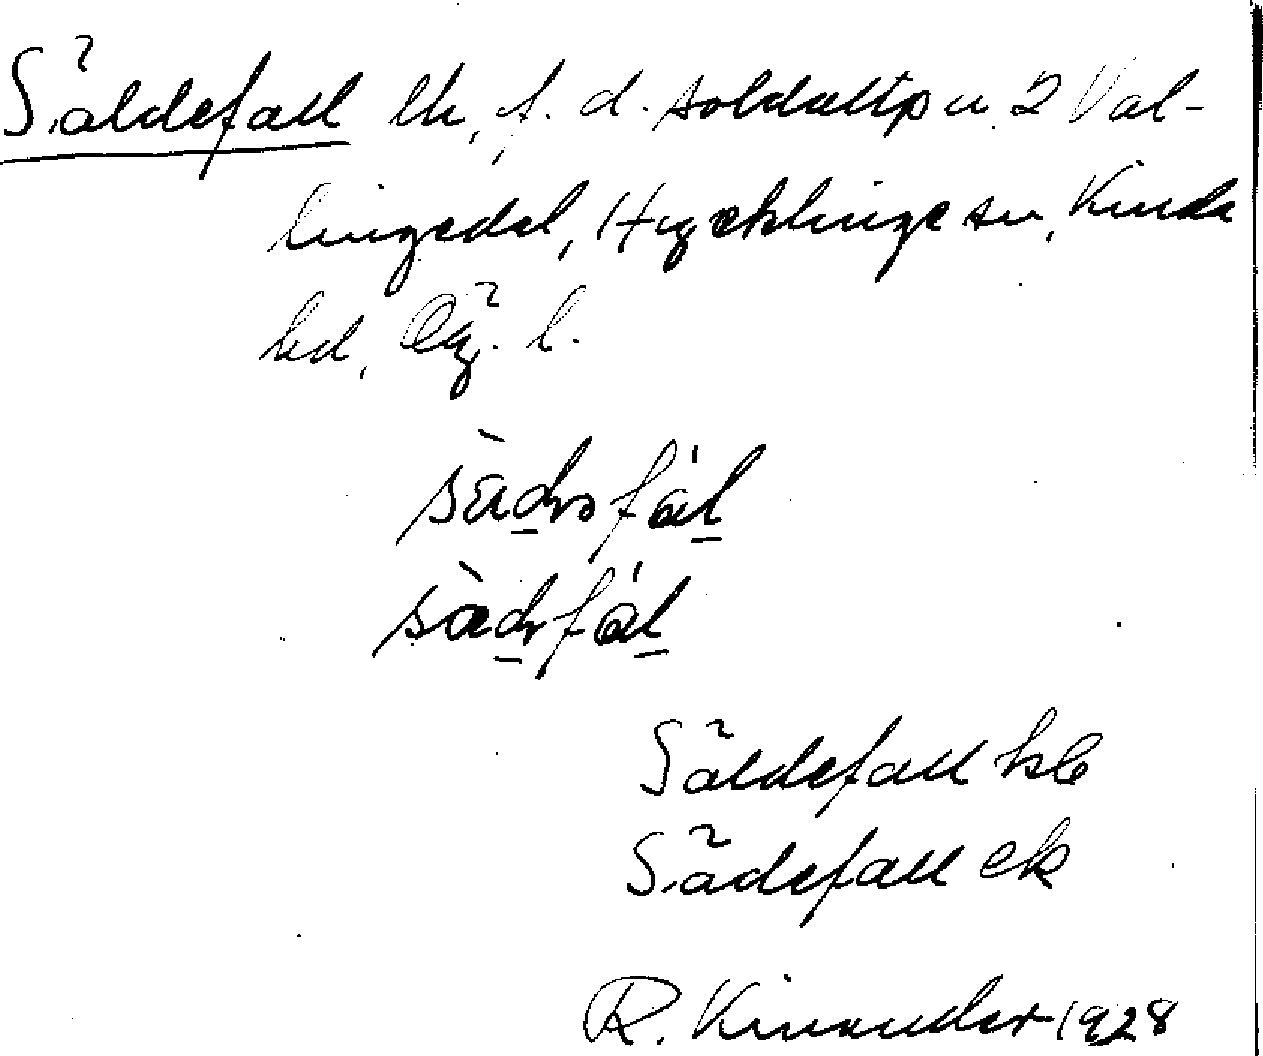 Säldefall lh, f. d. soldattp u. 2 Val-
lingedal, Hycklinge sn, Kinda
hd, Ög. l.
Säldefall hb
Sädefall ek
R. Kinander 1928